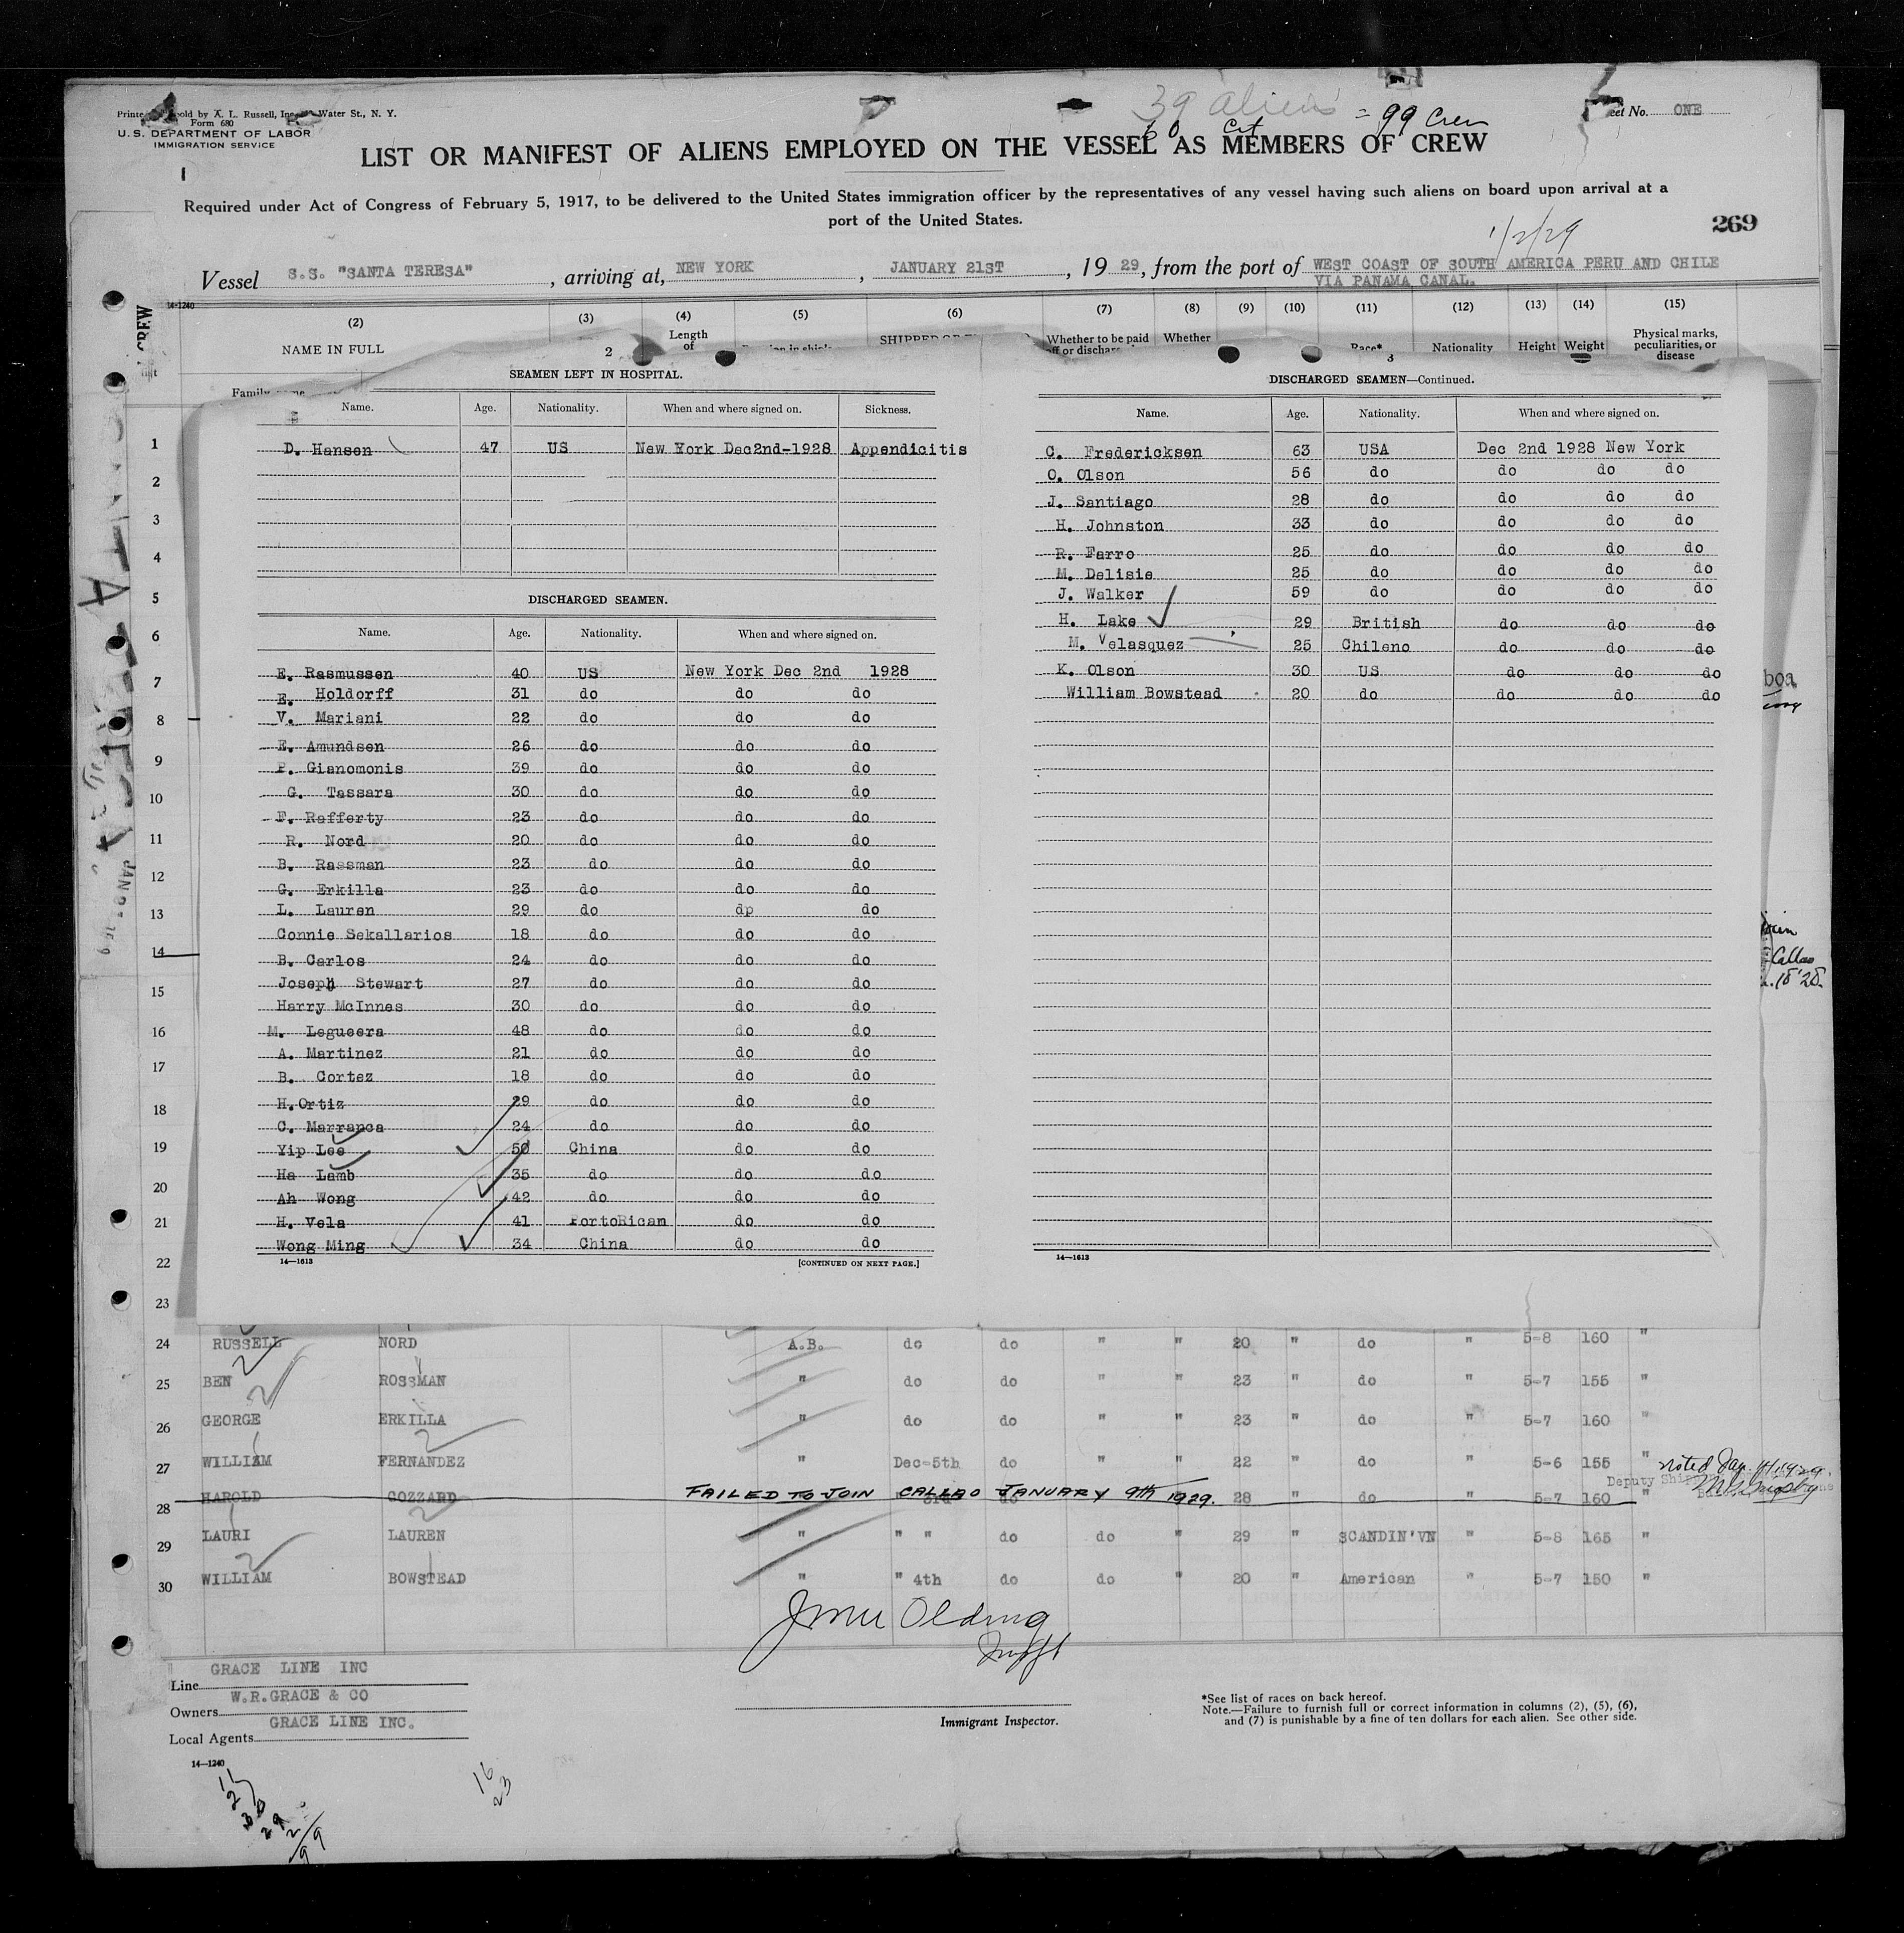 39 aliens
60 Cit = 99 Crew
Form 680
Water St., N. Y.
U. S. DEPARTMENT OF LABOR
IMMIGRATION SERVICE
No. ONE
LIST OR MANIFEST OF ALIENS EMPLOYED ON THE VESSEL AS MEMBERS OF CREW
Required under Act of Congress of February 5, 1917, to be delivered to the United States immigration officer by the representatives of any vessel having such aliens on board upon arrival at a
port of the United States.
269
1/2/29
Vessel S.S. "SANTA TERESA", arriving at, NEW YORK, JANUARY 21ST, 19 29, from the port of WEST COAST OF SOUTH AMERICA PERU AND CHILE
VIA PANAMA CANAL.
14-1240
(2) (3) (4) (5) (6) (7) (8) (9) (10) (11) (12) (13) (14) (15)
NAME IN FULL Length of Whether to be paid off or Whether Race* Nationality Height Weight Physical marks, peculiarities, or disease
2
SEAMEN LEFT IN HOSPITAL.
Name. Age. Nationality. When and where signed on. Sickness.
D. Hansen 47 US New York Dec2nd-1928 Appendicitis
DISCHARGED SEAMEN.
Name. Age. Nationality. When and where signed on.
E. Rasmussen 40 US New York Dec 2nd 1928
E. Holdorff 31 do do do
V. Mariani 22 do do do
E. Amundsen 26 do do do
P. Gianomonis 39 do do do
G. Tassara 30 do do do
F. Rafferty 23 do do do
R. Nord 20 do do do
B. Rassman 23 do do do
G. Erkilla 23 do do do
L. Lauren 29 do dp do
Connie Sekallarios 18 do do do
B. Carlos 24 do do do
Joseph Stewart 27 do do do
Harry McInnes 30 do do do
M. Legueera 48 do do do
A. Martinez 21 do do do
B. Cortez 18 do do do
H.Ortiz 29 do do do
C. Marranca 24 do do do
Yip Lee 50 China do do
Ha Lamb 35 do do do
Ah Wong 42 do do do
H. Vela 41 PortoRican do do
Wong Ming 34 China do do
14—1613 [CONTINUED ON NEXT PAGE.]
3
DISCHARGED SEAMEN—Continued.
Name. Age. Nationality. When and where signed on.
C. Fredericksen 63 USA Dec 2nd 1928 New York
O. Olson 56 do do do do
J. Santiago 28 do do do do
H. Johnston 33 do do do do
R. Farro 25 do do do do
M. Delisie 25 do do do do
J. Walker 59 do do do do
H. Lake 29 British do do do
M. Velasquez 25 Chileno do do do
K. Olson 30 US do do do
William Bowstead 20 do do do do
14—1613
1
2
3
4
5
6
7
8
9
10
11
12
13
14
15
16
17
18
19
20
21
22
23
24 RUSSELL NORD A.B. do do " " 20 " do " 5-8 160 "
25 BEN ROSSMAN " do do " " 23 " do " 5-7 155 "
26 GEORGE ERKILLA " do do " " 23 " do " 5-7 160 "
27 WILLIAM FERNANDEZ " Dec-5th do " " 22 " do " 5-6 155 "
28 HAROLD GOZZARD FAILED TO JOIN CALLAO JANUARY 9th 1929. 28 " do " 5-7 160 "
29 LAURI LAUREN " " " do do " 29 " SCANDIN'VN " 5-8 165 "
30 WILLIAM BOWSTEAD " " 4th do do " 20 " American " 5-7 150 "
Line GRACE LINE INC
Owners W.R.GRACE & CO
Local Agents GRACE LINE INC.
Immigrant Inspector.
*See list of races on back hereof.
Note.—Failure to furnish full or correct information in columns (2), (5), (6),
and (7) is punishable by a fine of ten dollars for each alien. See other side.
14—1240
16
23